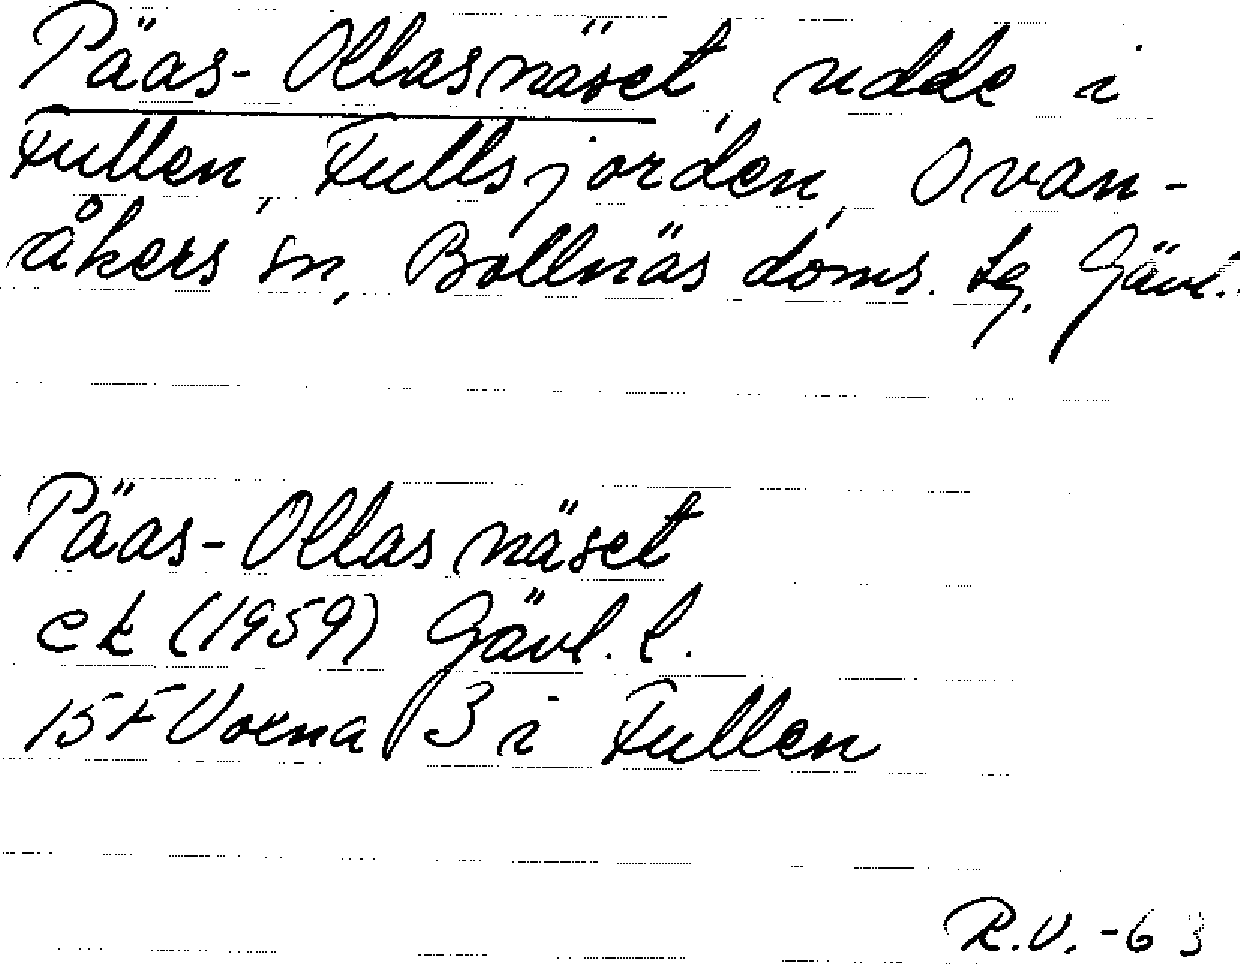 Päas-Ollasnäset, udde i
Fullen, Fullsjorden, Ovan-
åkers sn, Bollnäs doms. tg. Gävl.
Päas-Ollasnäset
ek (1959) Gävl. l.
15F Voxna 3 i Fullen
R.V. -63